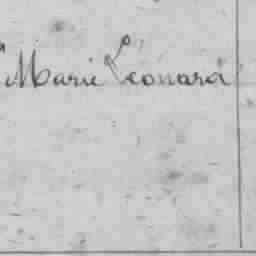 Marie Léonard